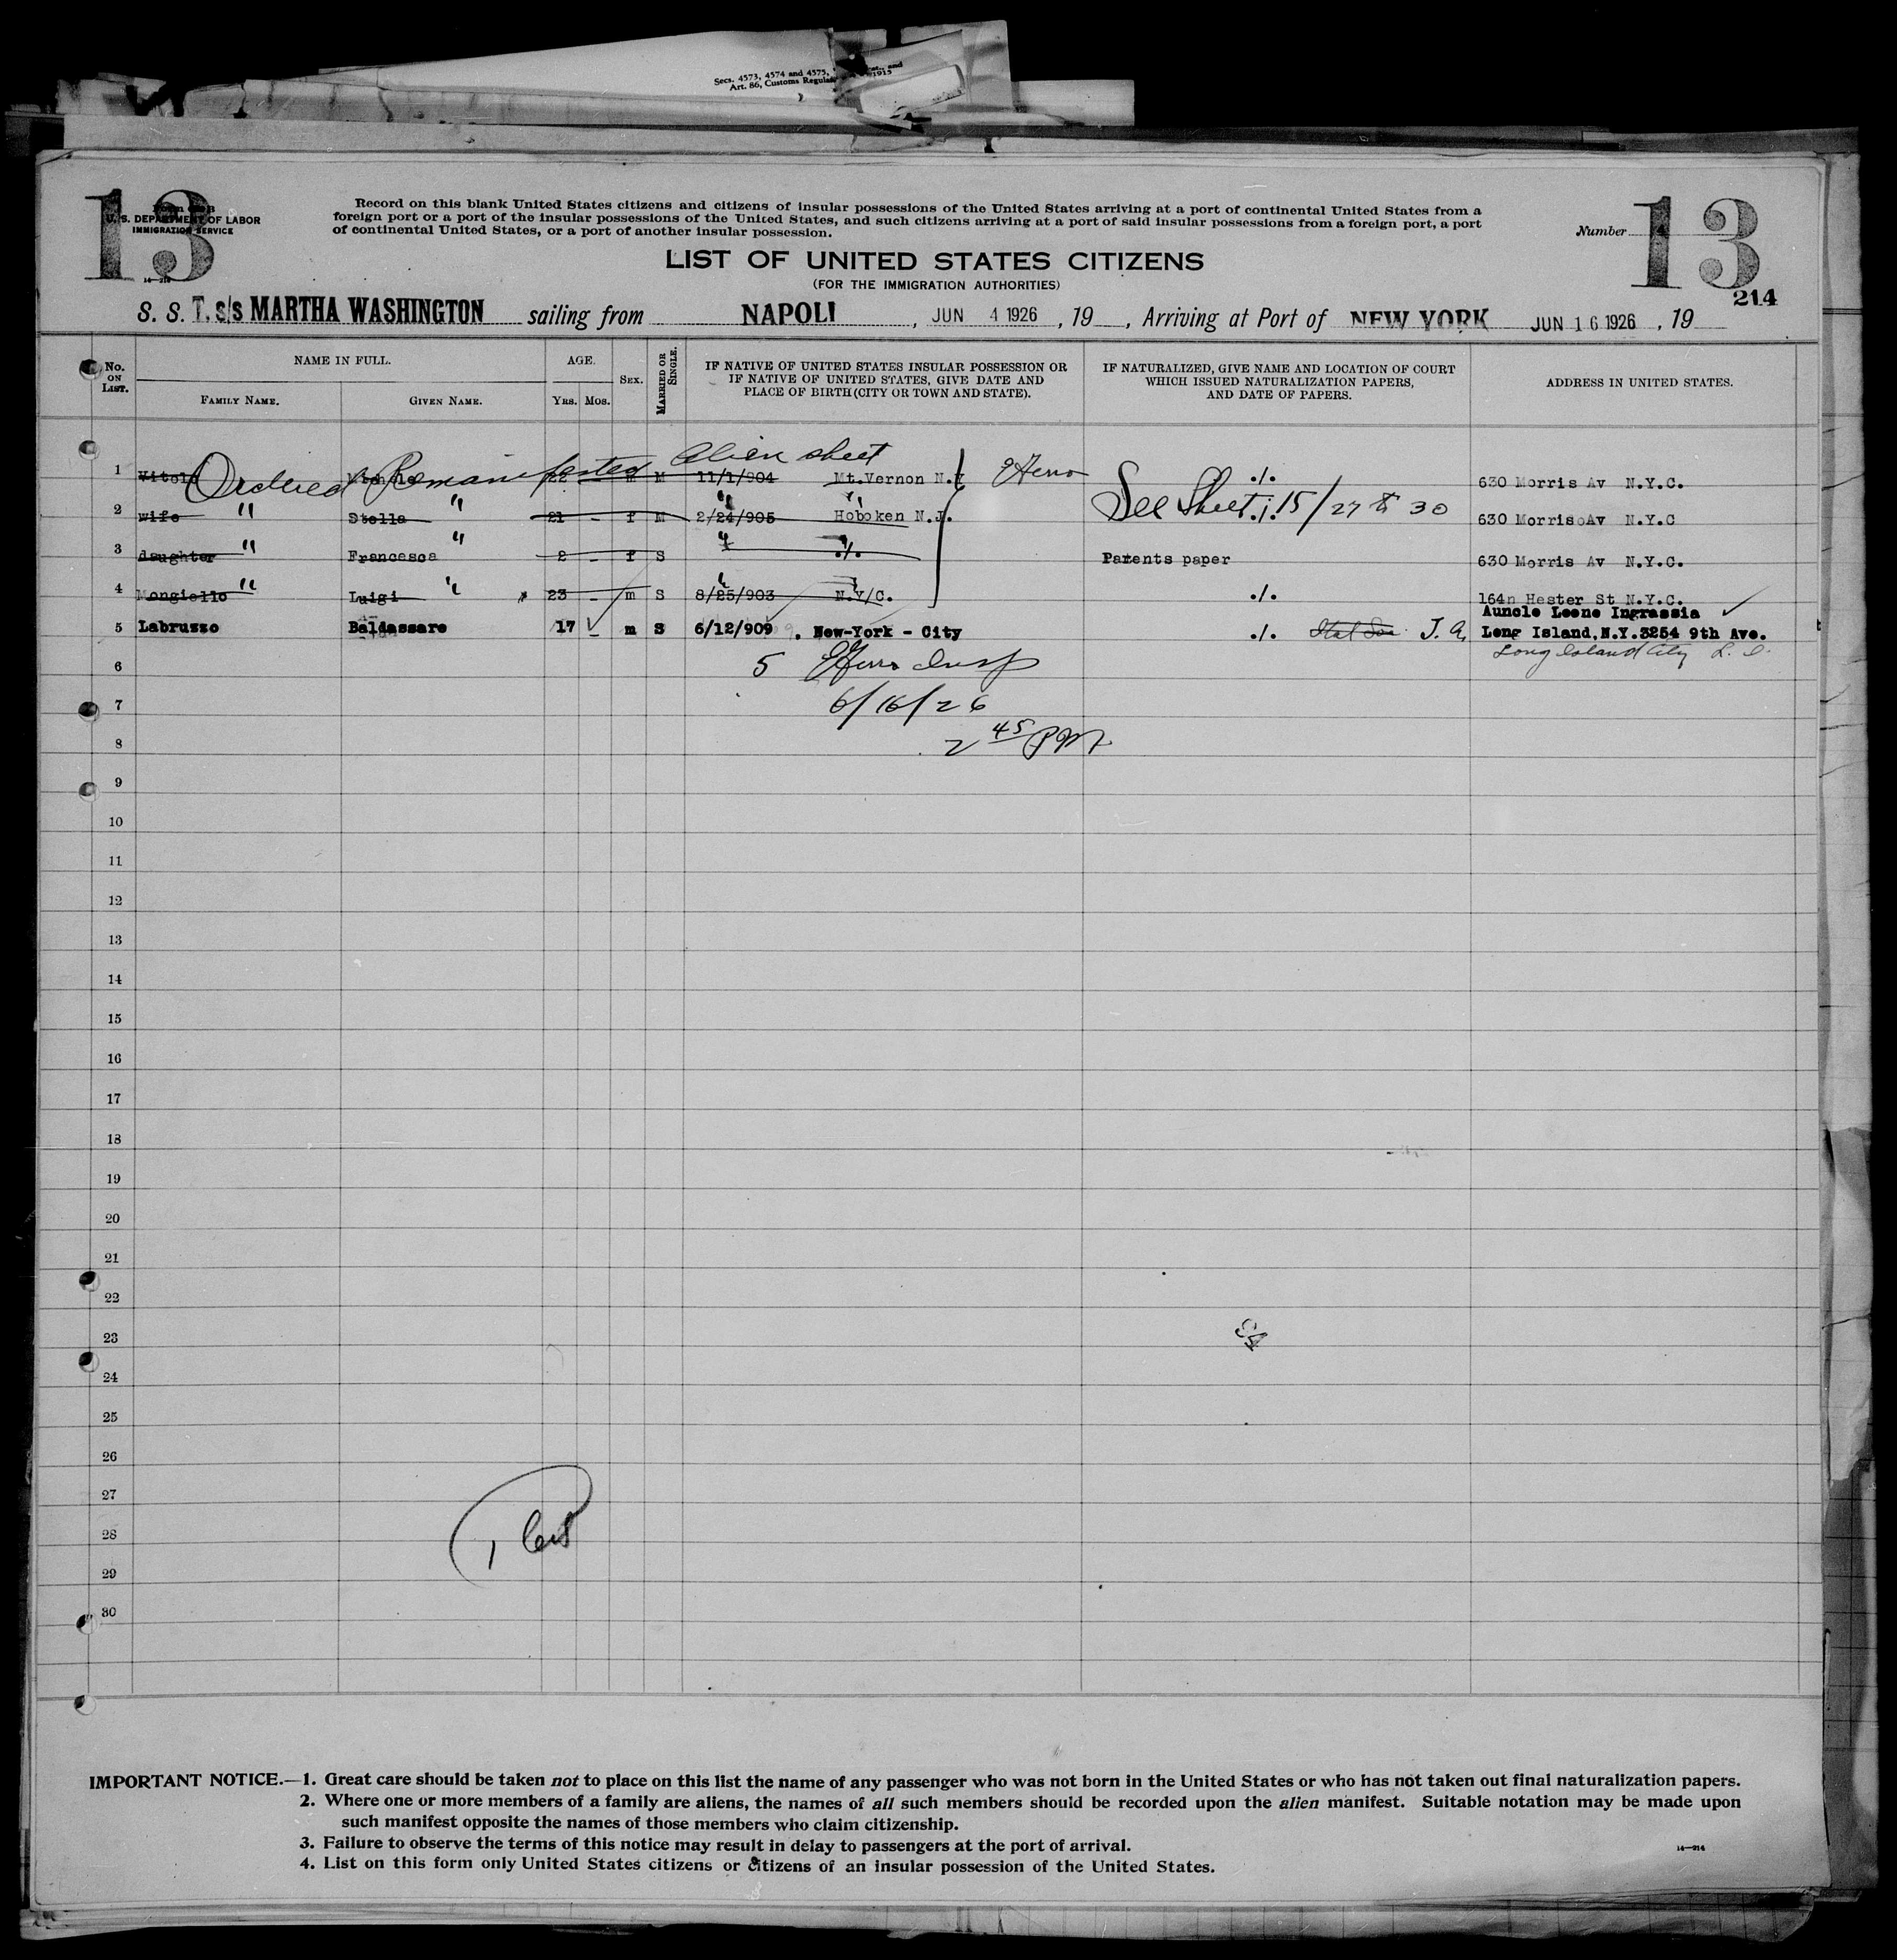 Secs. 4573, 4574 and 4575, and
Art. 86, Customs Regula 1915
13
U. S. DEPARTMENT OF LABOR
IMMIGRATION SERVICE
14—214
Record on this blank United States citizens and citizens of insular possessions of the United States arriving at a port of continental United States from a
foreign port or a port of the insular possessions of the United States, and such citizens arriving at a port of said insular possessions from a foreign port, a port
of continental United States, or a port of another insular possession.
Number 13
214
LIST OF UNITED STATES CITIZENS
(FOR THE IMMIGRATION AUTHORITIES)
S. S. T. s/s MARTHA WASHINGTON sailing from NAPOLI, JUN 4 1926, 19 , Arriving at Port of NEW YORK JUN 16 1926, 19
No. ON LIST.
NAME IN FULL.
FAMILY NAME.
GIVEN NAME.
AGE.
YRS. MOS.
SEX.
MARRIED OR SINGLE.
IF NATIVE OF UNITED STATES INSULAR POSSESSION OR
IF NATIVE OF UNITED STATES, GIVE DATE AND
PLACE OF BIRTH (CITY OR TOWN AND STATE).
IF NATURALIZED, GIVE NAME AND LOCATION OF COURT
WHICH ISSUED NATURALIZATION PAPERS,
AND DATE OF PAPERS.
ADDRESS IN UNITED STATES.
Ordered Remanifested Alien sheet
1 22 - m M 11/1/904 Mt.Vernon N.Y ./. 630 Morris Av N.Y.C.
See Sheet 15/27 to 30
2 wife " Stella " 21 - f M 2/24/905 " Hoboken N.J. " ./. 630 Morris Av N.Y.C
3 daughter " Francesca " 2 - f S " ./. " Parents paper 630 Morris Av N.Y.C.
4 Mongiello " Luigi " 23 - m S 8/25/903 N.Y/C. ./. 164 Hester St N.Y.C.
Auncle Leone Ingrassia ✓
5 Labruzzo Baldassare 17 ✓ - m S 6/12/909 . New-York - City ./. Long Island, N.Y. 3254 9th Ave.
Long Island City L. I.
6 5 Insp
7 6/16/26
8 2 45 PM
9
10
11
12
13
14
15
16
17
18
19
20
21
22
23
24
25
26
27
28
29
30
IMPORTANT NOTICE.—1. Great care should be taken not to place on this list the name of any passenger who was not born in the United States or who has not taken out final naturalization papers.
2. Where one or more members of a family are aliens, the names of all such members should be recorded upon the alien manifest. Suitable notation may be made upon
such manifest opposite the names of those members who claim citizenship.
3. Failure to observe the terms of this notice may result in delay to passengers at the port of arrival.
14—214
4. List on this form only United States citizens or citizens of an insular possession of the United States.